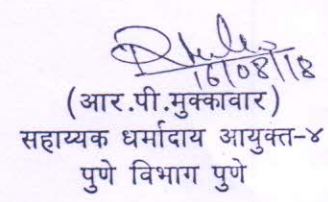 16/08/18
(आर.पी.मुक्कावार)
सहाय्यक धर्मादाय आयुक्त-४
पुणे विभाग पुणे